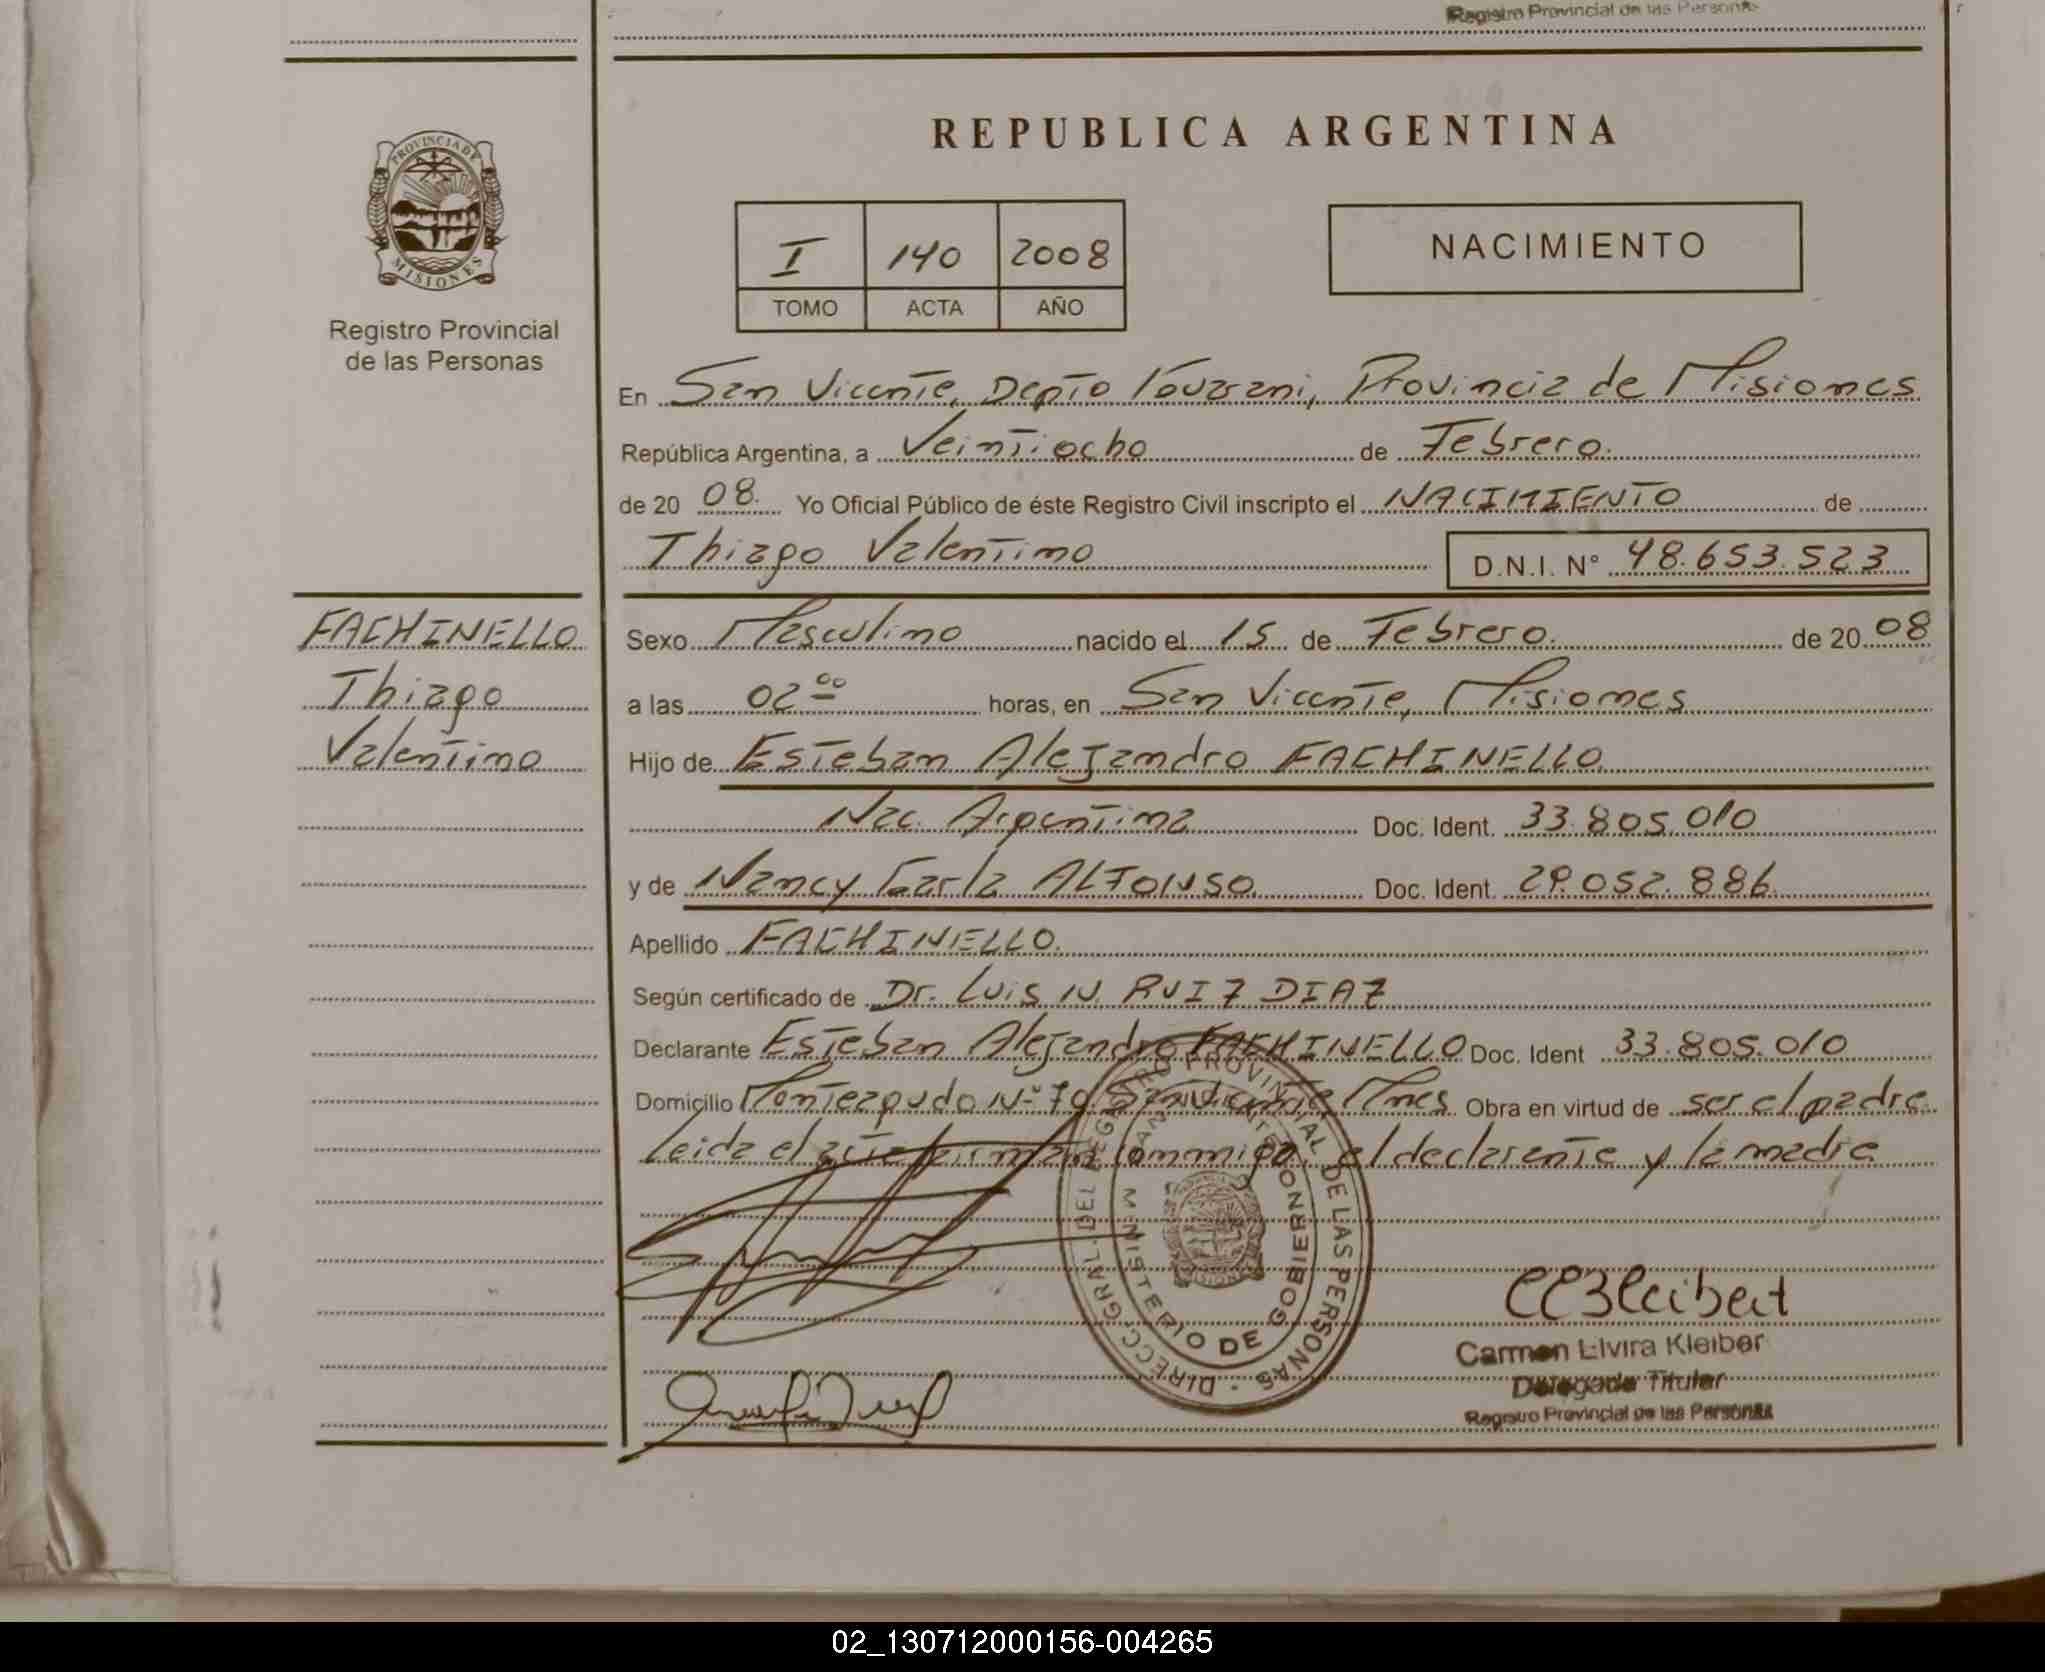 Registro Provincial de las Personas
REPUBLICA ARGENTINA
PROVINCIA DE
MISIONES
Registro Provincial
de las Personas
I 140 2008
TOMO ACTA AÑO
NACIMIENTO
En San Vicente, Depto Guarani, Provincia de Misiones
República Argentina, a Veintiocho de Febrero.
de 20 08. Yo Oficial Público de éste Registro Civil inscripto el NACIMIENTO de
Thiago Valentino D.N.I. N° 48.653.523
FACHINELLO
Thiago
Valentino
Sexo Masculino nacido el 15 de Febrero. de 20 08
a las 02 00 horas, en San Vicente, Misiones
Hijo de Esteban Alejandro FACHINELLO
Nac. Argentina Doc. Ident. 33.805.010
y de Nancy Carla ALFONSO Doc. Ident. 29.052.886
Apellido FACHINELLO.
Según certificado de Dr. Luis N. RUIZ DIAZ
Declarante Esteban Alejandro FACHINELLO Doc. Ident 33.805.010
Domicilio Monteagudo Nº 79 San Vicente, Mnes Obra en virtud de ser el padre
Leida el acta firman conmigo, el declarante y la madre
DIRECC. GRAL. DEL REGISTRO PROVINCIAL DE LAS PERSONAS -
MINISTERIO DE GOBIERNO
Carmen Elvira Kleiber
Delegada Titular
Registro Provincial de las Personas
02_130712000156-004265